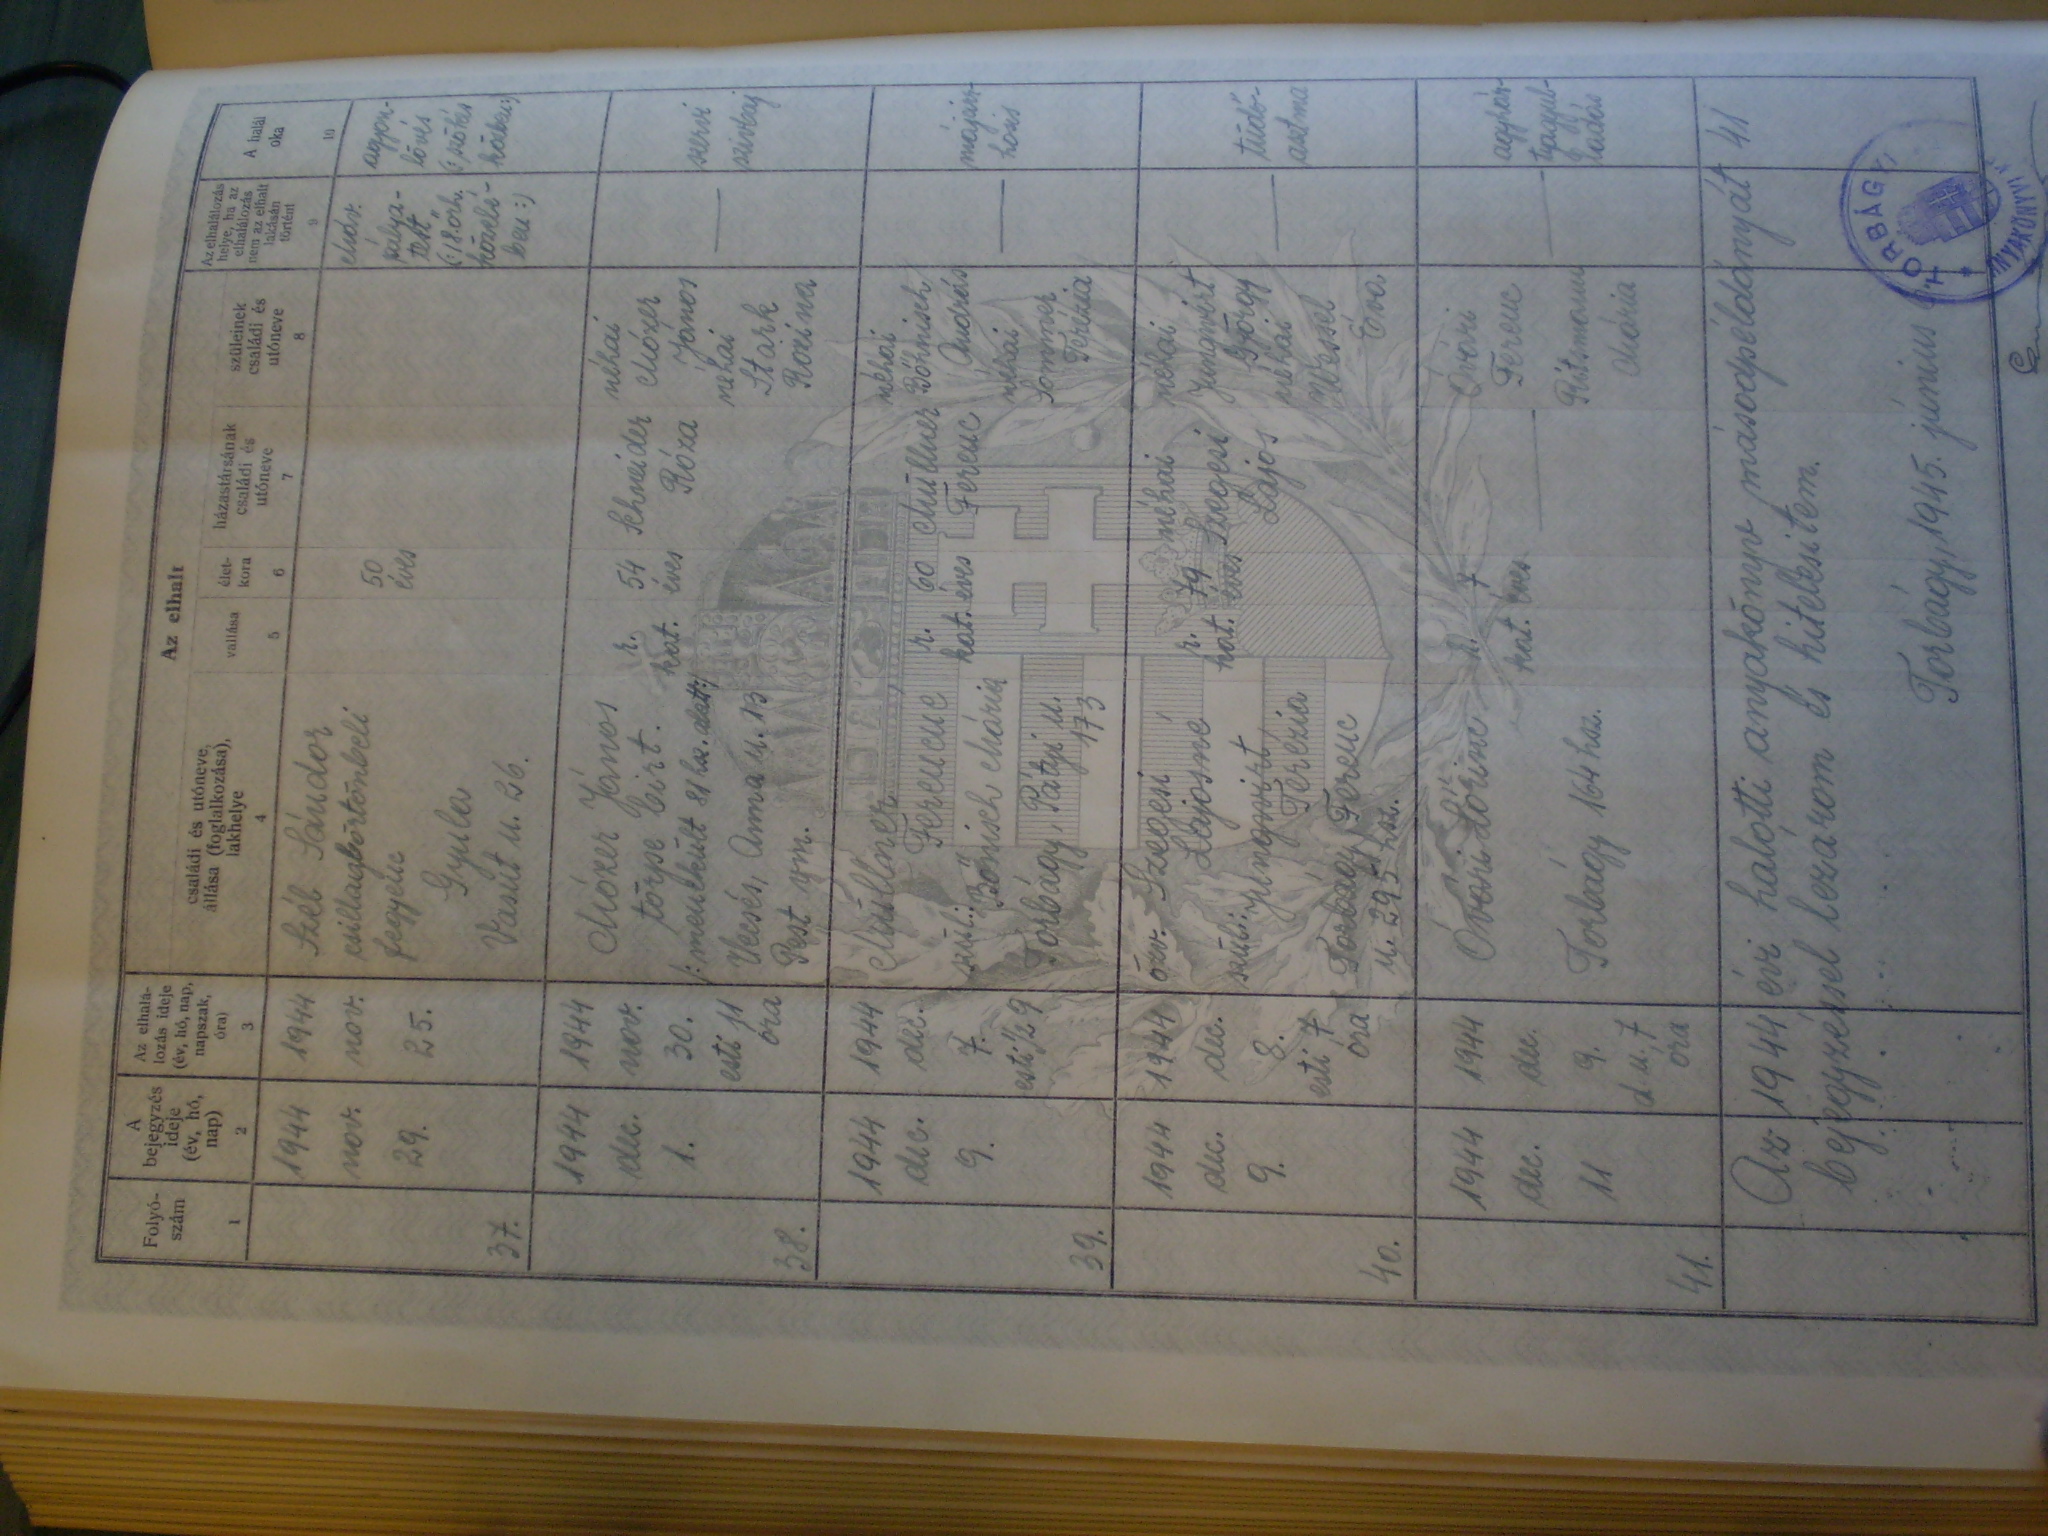 Az elhalt
Folyó-
szám
A
bejegyzés
ideje
(év, hó,
nap)
Az elhalá-
lozás ideje
(év, hó, nap,
napszak,
óra)
családi és utóneve,
állása (foglalkozása),
lakhelye
vallása
élet-
kora
házastársának
családi és
utóneve
szüleinek
családi és
utóneve
Az elhalálozás
helye, ha az
elhalálozás
nem az elhalt
lakásán
történt
A halál
oka
1
2
3
4
5
6
7
8
9
10
37.
1944
nov.
29.
1944
nov.
25.
Szél Sándor
csillagbörtönbeli
fegyenc
Gyula
Vasút u. 26.
50
éves
országút
pálya-
test
(:18. őrh.
közelé-
ben:)
agyon-
lövés
(:szökés
közben:)
38.
1944
dec.
1.
1944
nov.
30.
esti 11
óra
Mózer János
törpe birt.
(:menekült 81 ház. alatt:)
Vecsés, Anna u. 13
Pest vm.
r.
kat.
54
éves
Schneider
Róza
néhai
Mózer
János
néhai
Stark
Rozina
szervi
szívbaj
39.
1944
dec.
9.
1944
dec.
7.
esti 1/2 9
Müllner
Ferencne
szül.: Bőhnisch Mária
Torbágy, Pátyi u.
173
r.
kat.
60
éves
Müllner
Ferenc
néhai
Böhnisch
András
néhai
Sommer
Terézia
májzsu-
40.
1944
dec.
9.
1944
dec.
8.
esti 7
óra
özv. Szegesi
Lajosné
szül.: Jungwirt
Terezia
Torbágy Ferenc
u. 295 hsz.
r.
kat.
79
éves
néhai
Szegesi
Lajos
néhai
Jungwirt
György
néhai
Wessel
Éva
tüdő-
asztma
41.
1944
dec.
11
1944
dec.
9.
d.u. 7
óra
Óvári Lőrinc
Torbágy 164 ház.
r.
kat.
7
éves
Óvári
Ferenc
Mária
Az 1944 évi halotti anyakönyv másodpéldányát 41
bejegyzéssel lezárom és hitelesitem.
Torbágy, 1945. június
TORBÁGYI
ANYAKÖNYVI